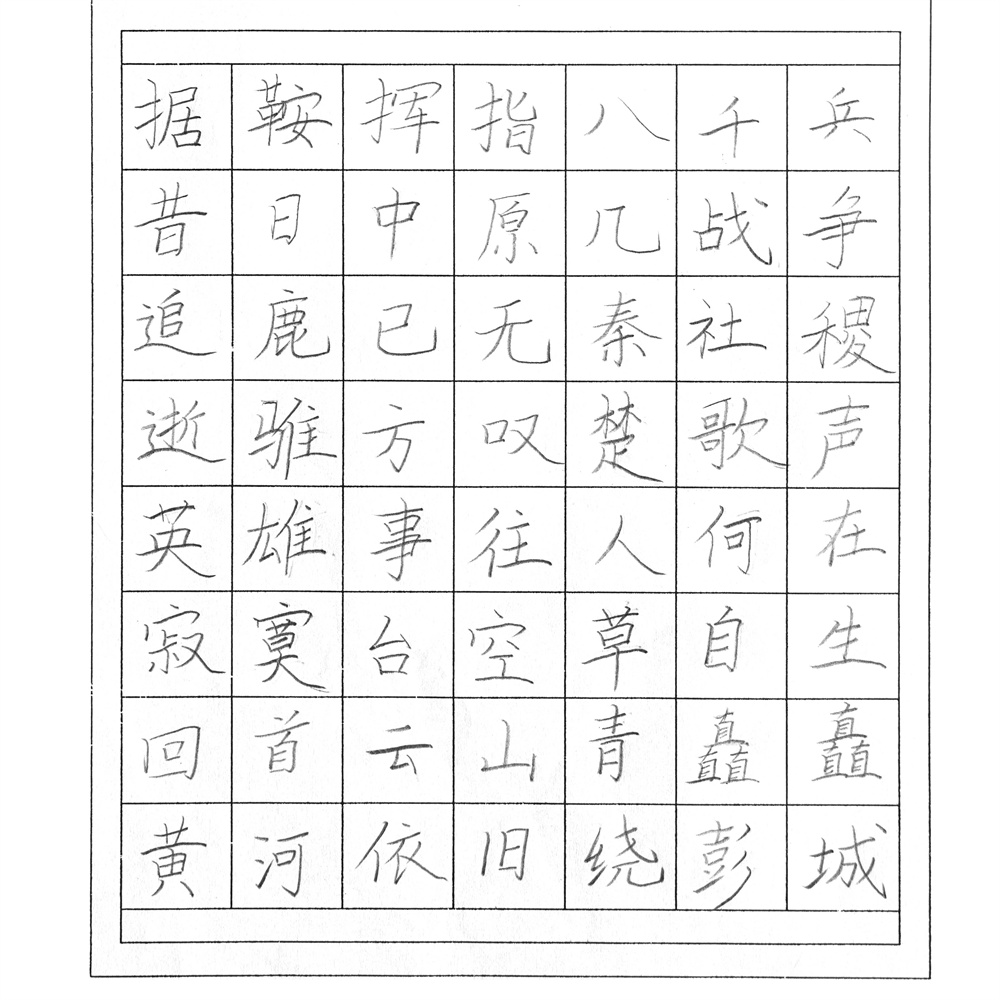 据鞍挥指八千兵
昔日中原几战争
追鹿已无秦社稷
逝骓方叹楚歌声
英雄事往人何在
寂寞台空草自生
回首云山青矗矗
黄河依旧绕彭城